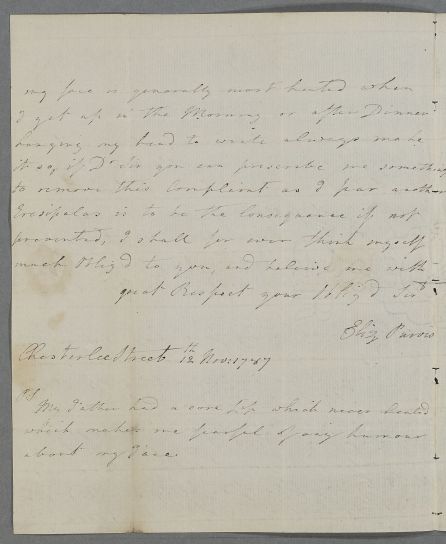 my face is generally most heated when
I get up in the Morning or after Dinner
hanging my head to write always make
it so, if Dr Sir you can prescribe me something
to remove this Complaint as I fear another
Eresipelas is to be the Consequence if not
prevented, I shall for ever think myself
much Oblig'd to you, and believe me with
great Respect your Oblig'd Sert
Eliz Purvis
Chesterlee Street 12th Nov: 1787
PS
My Father had a sore Lip which never healed
which makes me fearful of any humour
about my Face.